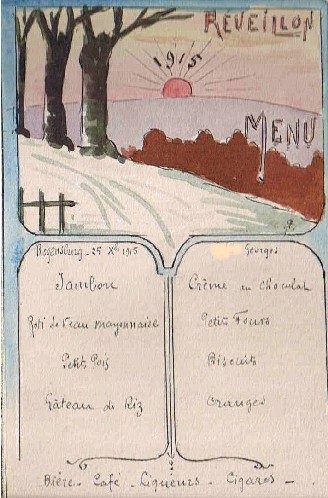 REVEILLON
1915
MENU
Regensburg - 25 Xbre 1915
Georges
Jambon
Roti de Veau mayonnaise
Petits Pois
Gâteau de Riz
Crème au chocolat
Petits Fours
Biscuits
Oranges
Bière - Café - Liqueurs - Cigares -